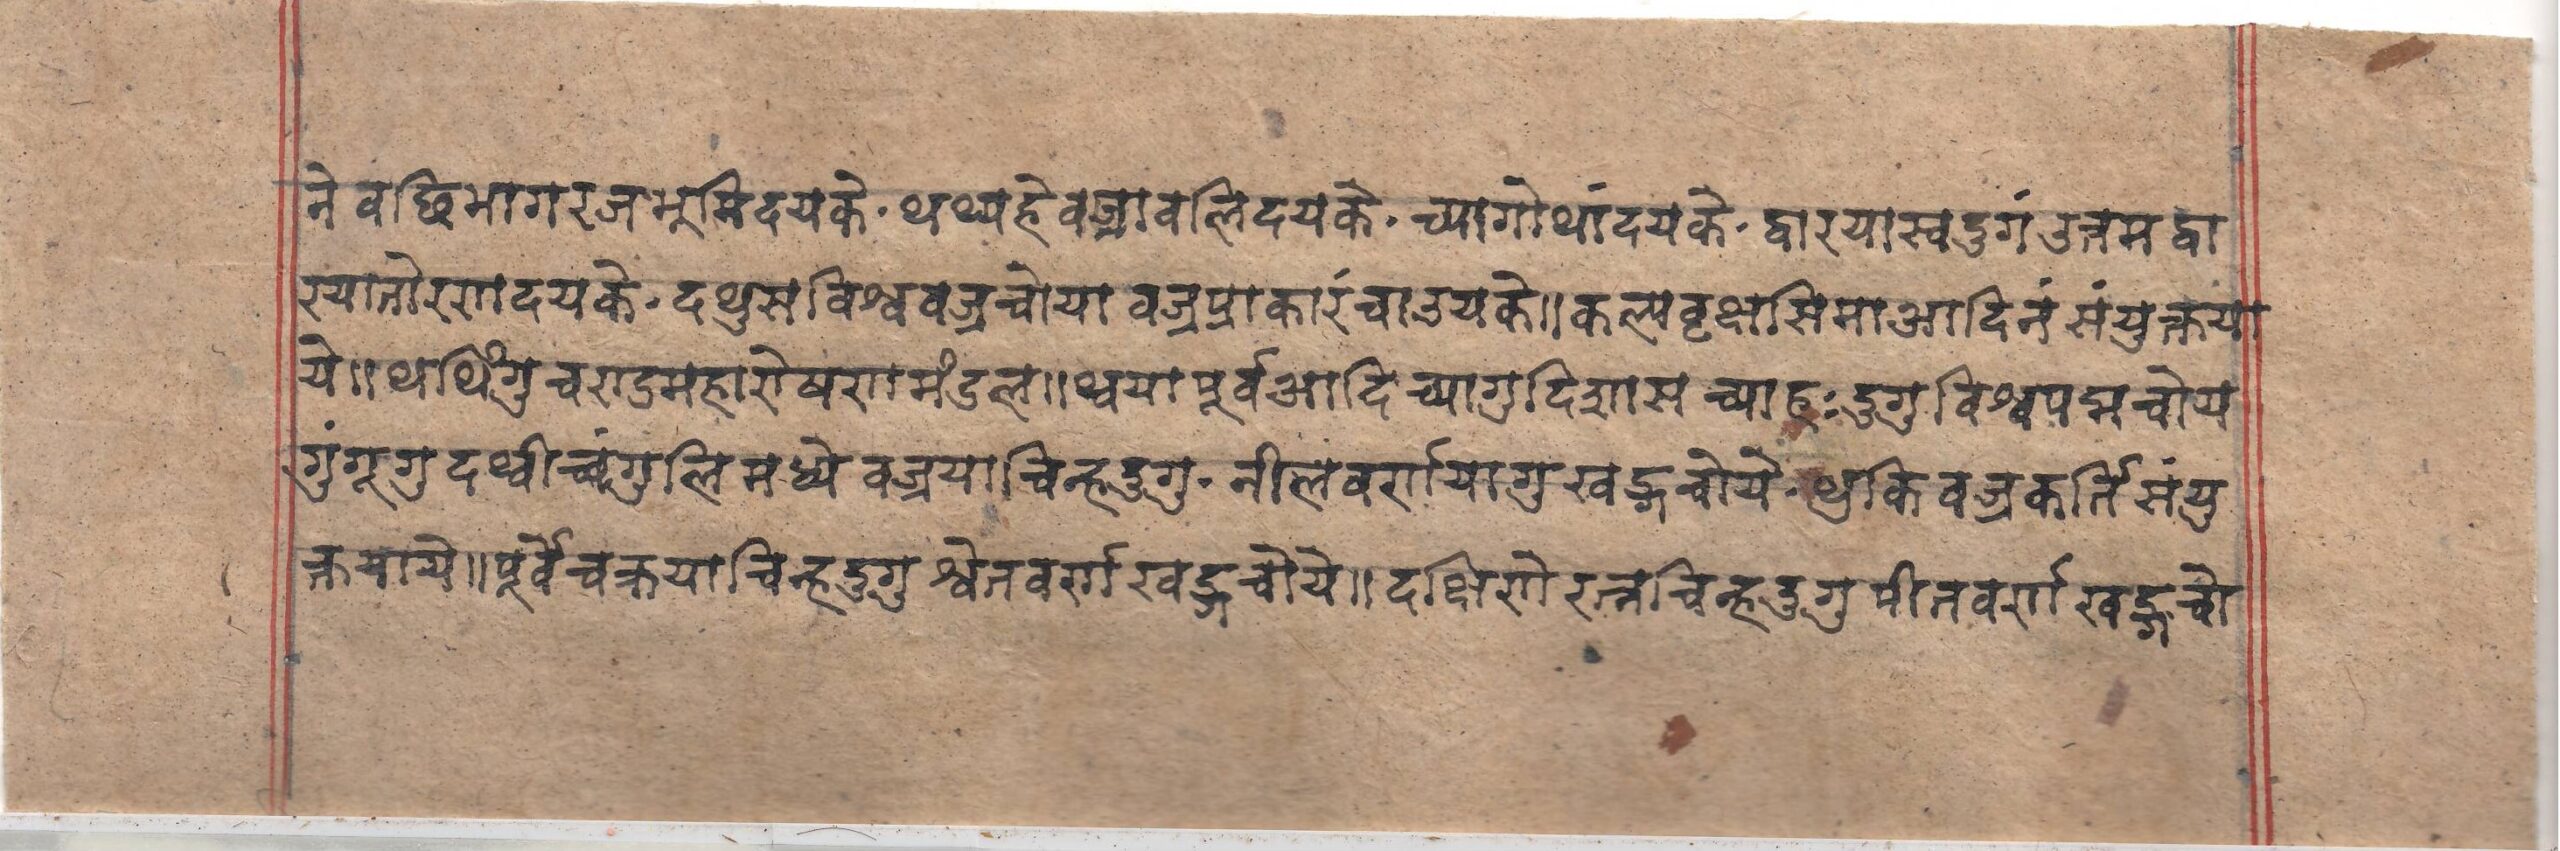 ने वछिभागरजभूमिदयके · थथ्यहे वज्रावलिदयके · च्यागोथांदयके · द्वारयास्वदुगं उत्तम द्वा
रयातोरणादयके · दथुस विश्ववज्रचोया वज्रप्राकारंचाउयके ॥ कल्पवृक्षसिमाआदिनं संयुक्तया
ये ॥ थथिंगु चण्डमहारोषणमंडल ॥ थ्वया पूर्वआदि च्यागुदिशास च्याहः दुगु विश्वपद्मचोय
गुंगूगु दथ्वीच्वंगुलि मध्ये वज्रयाचिन्हदुगु · नीलवर्णयागु खड्गचोये · थुकि वज्रकर्तिसंयु
क्तयाये ॥ पूर्वे चक्रयाचिन्हदुगु श्वेतवर्ण खड्गचोये ॥ दक्षिणे रत्नचिन्हदुगु पीतवर्ण खड्गचो